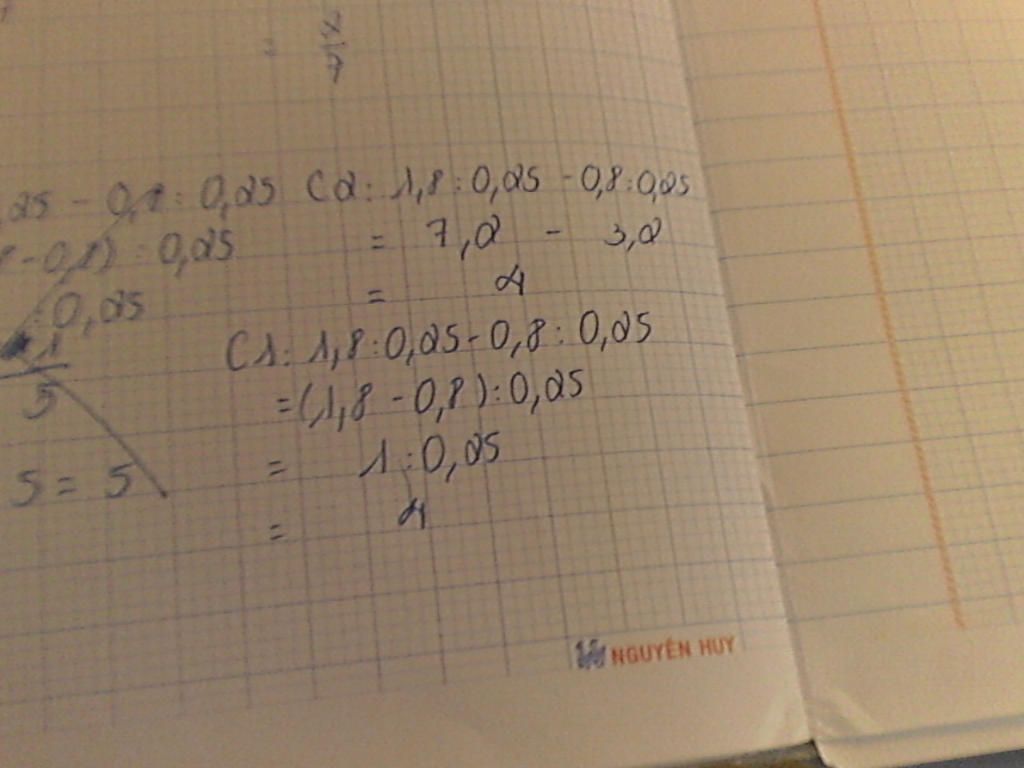 = 7
,25 - 0,8 : 0,25
- 0,8) : 0,25
: 0,25
1
5
5 = 5
C2: 1,8 : 0,25 - 0,8 : 0,25
= 7,2 - 3,2
= 4
C1: 1,8 : 0,25 - 0,8 : 0,25
= (1,8 - 0,8) : 0,25
= 1 : 0,25
= 4
NGUYÊN HUY